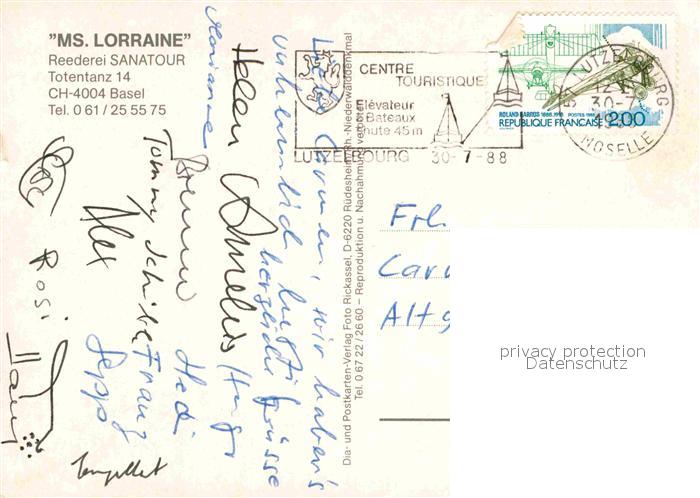 "MS. LORRAINE"
Reederei SANATOUR
Totentanz 14
CH-4004 Basel
Tel. 0 61 / 25 55 75
CENTRE
TOURISTIQUE
Elévateur
à Bateaux
chute 45 m
LUTZELBOURG 30-7-88
ROLAND GARROS 1888-1918 POSTES 1988
REPUBLIQUE FRANCAISE 2,00
LUTZELBOURG
30-7
MOSELLE
Dia- und Postkarten-Verlag Foto Rickassel, D-6220 Rüdesheim/Rh.-Niederwalddenkmal
Tel. 0 67 22 / 26 60 – Reproduktion u. Nachahmung verboten
Carmen, wir haben's
lustig
herzliche Grüsse
Marianne
Helen
Hugo
Hedi
Tommy
Franz
Alex
Sepp
Rosi
Frl.
Car
Alt
privacy protection
Datenschutz